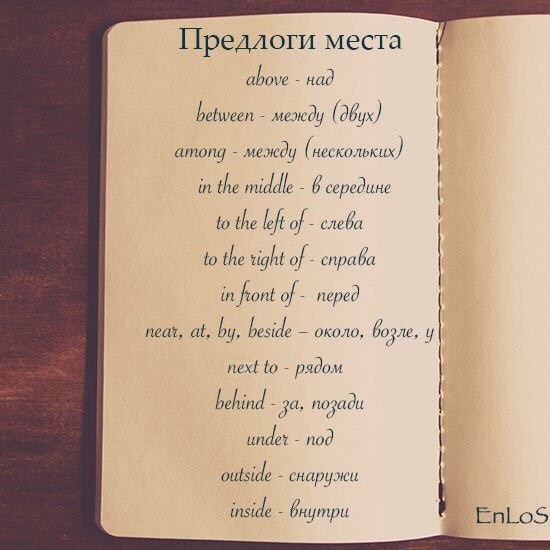 Предлоги места
above - над
between - между (двух)
among - между (нескольких)
in the middle - в середине
to the left of - слева
to the right of - справа
in front of - перед
near, at, by, beside – около, возле, у
next to - рядом
behind - за, позади
under - под
outside - снаружи
inside - внутри
EnLoS